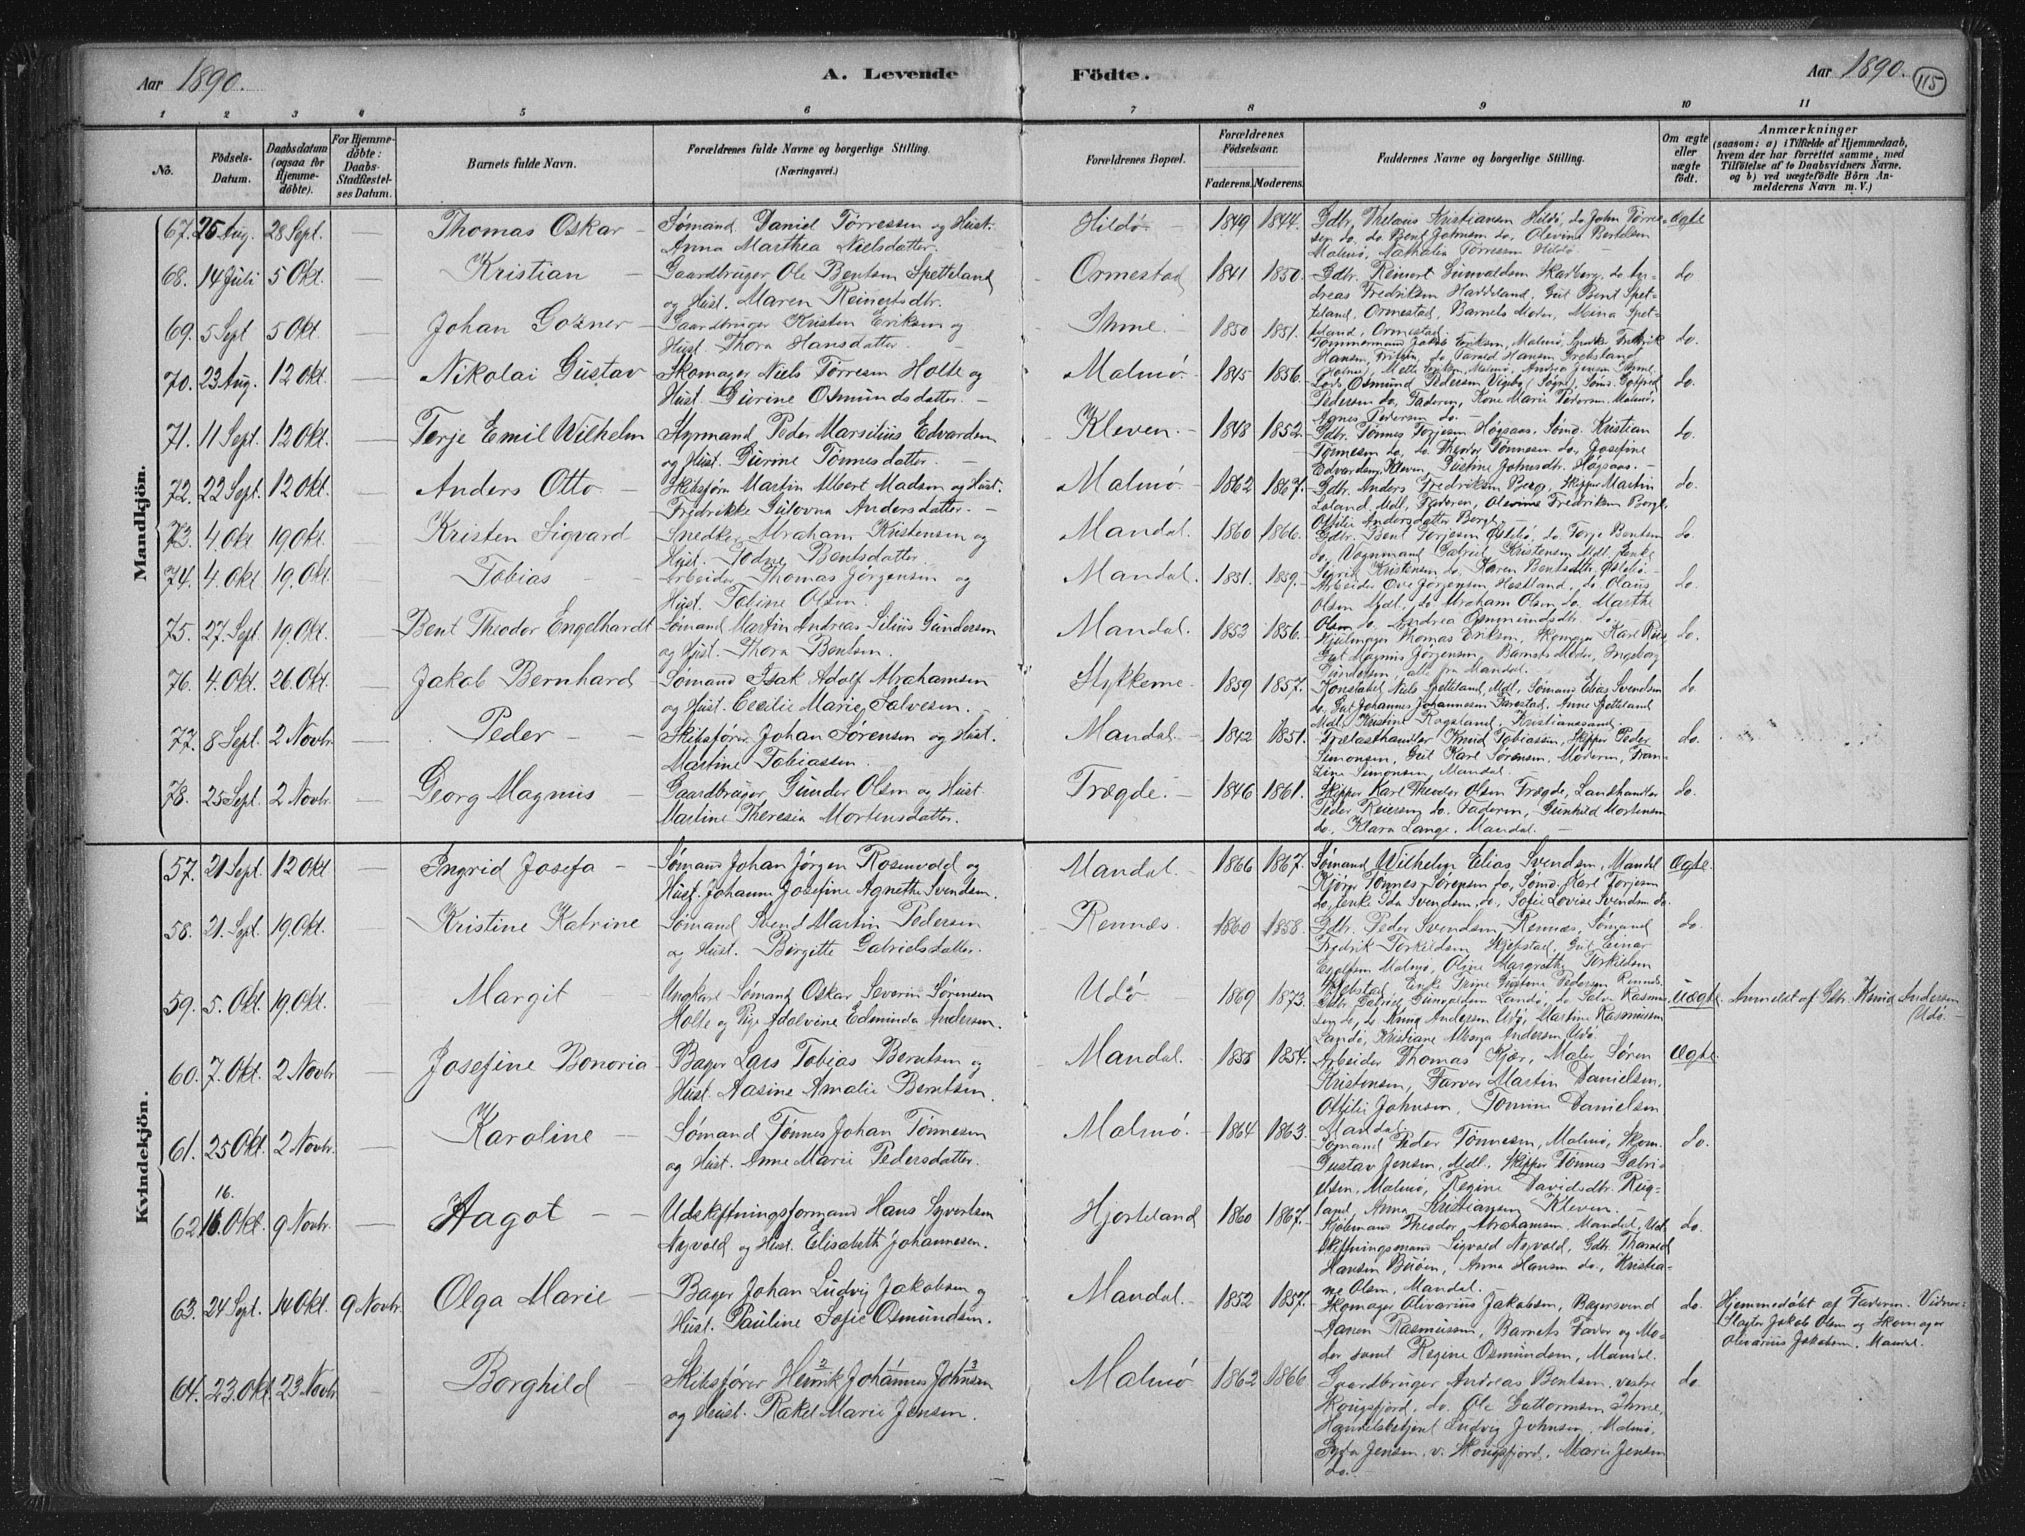 Aar 1890.
A. Levende
Födte.
Aar 1890.
115
1 2 3 4 5 6 7 8 9 10 11
No.
Födsels-Datum.
Daabsdatum (ogsaa for Hjemme-döbte).
For Hjemme-döbte: Daabs-Stadfæstel-ses Datum.
Barnets fulde Navn.
Forældrenes fulde Navne og borgerlige Stilling. (Næringsvei.)
Forældrenes Bopæl.
Forældrenes Födselsaar.
Faderens. Moderens.
Faddernes Navne og borgerlige Stilling.
Om ægte eller uægte födt.
Anmærkninger
(saasom: a) i Tilfælde af Hjemmedaab, hvem der har forrettet samme, med Tilföielse af to Daabsvidners Navne. og b) ved uægtefödte Börn Anmelderens Navn m. V.)
Mandkjön.
67. 25 Aug. 28 Sept. — Thomas Oskar — Sømand Daniel Tørressen og Hust. Hildø — 1849 1844. Gdbr. Kristiansen Hildø, do John Tørre- ægte
Anna Marthea Nielsdatter. sen do, do Bent Johnsen do, Olevine Bertelsen
Malmø, Nathalia Tørresen Hildø
68. 14 Juli 5 Okt. — Kristian — Gaardbruger Ole Bentsen Spetteland Ormestad 1841 1850. Gdbr. Reinert Gunvaldsen Skarberg, do An- do
og Hust. Maren Reinertsdtr. dreas Fredriksen Haddeland, Gut Bent Spet-
teland, Ormestad, Barnets Moder, Mina Spet-
69. 5 Sept 5 Okt. — Johan Gozner — Gaardbruger Kristen Eriksen og Ihme. — 1850 1851. teland, Ormestad. do.
Hust. Thora Hansdatter. Tømmermand Jakob Eriksen, Malmø, Fredrik
70. 23 Aug. 12 Okt. — Nikolai Gustav Skomager Niels Tørresen Holte og Malmø. 1845 1856. Lods Osmund Pedersen do.
Hust. Gurine Osmundsdatter. — Pedersen do, Faderen, Kone Marie Pedersen Malmø,
Agnes Pedersen do. —
71. 11 Sept. 12 Okt. — Terje Emil Wilhelm Styrmand Peder Marselius Edvardsen Kleven. — 1848 1852. Gdbr. Tønnes Terjesen Høgsaas, Sømd. Kristian do.
og Hust. Gurine Tønnesdatter. — Tønnesen do, do Theodor Tønnesen do, Josefine
Edvardsen, Kleven, Justine Johnsdtr. Høgsaas. —
72. 22 Sept. 12 Okt. — Anders Otto — Skibsfører Martin Albert Madsen og Hust. Malmø — 1862 1867. Gdbr. Anders Fredriksen Berg, Skipper Martin do.
Fredrikke Gulovna Andersdatter. — Loland, Mdl, Faderen, Olevine Fredriksen Berge,
Ottilie Andersdatter Berge. —
73. 4 Okt 19 Okt. — Kristen Sigvard Snedker Abraham Kristensen og Mandal. 1860 1866. Gdbr. Bent Terjesen Østebø, do Terje Bentsen do.
Hust. Todne Bentsdatter. do, Vognmand Gabriel Kristensen Mdl, Enke
Sigrid Kristensen do, Karen Bentsdtr Østebø. —
74. 4 Okt 19. Okt — Tobias — Arbeider Thomas Jørgensen og Mandal. 1851. 1859. Arbeider Ove Jørgensen Hestland, do Olaus do.
Hust. Tobine Olsen. Olsen Mdl, do Abraham Olsen do, Marthe
Olsen do, Andrea Osmundsdtr. do.
75. 27. Sept. 19. Okt. — Bent Theodor Engelhardt Sømand Martin Andreas Silius Gundersen Mandal. 1853 1856. Hjulmager Thomas Eriksen, Skomager Karl do.
og Hust. Thora Bentsen. Gut Magnus Jørgensen, Barnets Moder, Ingeborg
Gundersen, alle fra Mandal.
76. 4. Okt. 26 Okt. — Jakob Bernhard Sømand Isak Adolf Abrahamsen Stykkerne 1859 1857. Konstabel Niels Spetteland, Mdl, Sømand Elias Svendsen do.
og Hust. Cecilie Marie Salvesen. — do, Gut Johannes Johannesen Farestad, Anne Spetteland
Mdl, Kristine Rogsland, Kristianssand. —
77. 8 Sept. 2 Novbr. — Peder — Skibsfører Johan Sørensen og Hust. Mandal — 1842 1851. Trælasthandler Knud Tobiassen, Skipper Peder do.
Martine Tobiassen. Simonsen, Gut Karl Sørensen, Moderen, Fran-
zine Simonsen, Mandal.
78. 25 Sept. 2 Novbr. — Georg Magnus — Gaardbruger Gunder Olsen og Hust. Trægde. — 1846 1861. Skipper Karl Theodor Olsen Trægde, Landhandler do.
Martine Theresia Mortensdatter. Peder Reiersen do, Faderen, Gunhild Mortensen
do, Klara Lange, Mandal. —
Kvindekjön.
57. 21 Sept. 12 Okt — Ingrid Josefa — Sømand Johan Jørgen Rosenvold og Mandal. — 1866 1867. Sømand Wilhelm Elias Svendsen, Mandal ægte.
Hust. Johanne Josefine Agnethe Svendsen. Tønnes Sørensen do, Sømd. Karl Terjesen
do, Enke Ida Svendsen do, Sofie Lovise Svendsen do.
58. 21. Sept. 19. Okt. — Kristine Katrine Sømand Svend Martin Pedersen Rennæs. 1860 1858. Gdbr. Peder Svendsen Rennæs, Sømand do.
og Hust. Birgitte Gabrielsdatter. Fredrik Torkildsen Skjebstad, Gut Einar
Malmø, Oline Margrethe Torkildsen
59. 5. Okt 19 Okt. — Margit — Ungkarl Sømand Oskar Severin Sørensen Udø 1869 1873. Gdbr. Gabriel Gunvaldsen Landø, do Salve Rasmus- uægte. Anmeldt af Gdbr. Knud Andersen
Holte og Pige Adolvine Edminda Andersen. sen do, do Knud Andersen Udø, Martine Rasmussen Udø. —
Landø, Kristiane Andersen, Udø.
60. 7. Okt. 2 Novbr — Josefine Bonoria — Bager Lars Tobias Berntsen og Mandal. 1855 1854. Arbeider Thomas Kjær, Maler Søren ægte.
Hust. Aasine Amalie Berntsen. Kristensen, Farver Martin Danielsen,
Ottilie Johnsen, Tomine Danielsen
Mandal.
61. 25 Okt. 2 Novbr. — Karoline — Sømand Tønnes Johan Tønnesen Malmø. — 1864 1863. Sømand Peder Tønnesen, Malmø, Skom. do.
og Hust. Anne Marie Pedersdatter. Gustav Jensen, Mdl. Skipper Tønnes Gabri-
elsen, Malmø, Regine Davidsdtr. Rug-
land, Anna Kristiansen Kleven. —
16.
62 16 Okt. 9 Novbr. — Aagot — Udskiftningsformand Hans Syvertsen Hjorteland 1860 1867. Kjøbmand Theodor Abrahamsen, Mandal, Ud- do.
Nyvold og Hust. Elisabeth Johannesen. skiftningsmand Sigvald Nyvold, Gdbr. Tharald
Hansen Buøen, Anna Hansen do, Kristia-
ne Olsen, Mandal. —
63. 24 Sept. 14 Okt. 9 Novbr. Olga Marie — Bager Johan Ludvig Jakobsen og Mandal. — 1852 1857. Skomager Olivarius Jakobsen, Bagersvend do. Hjemmedøbt af Faderen. Vidner:
Hust. Pauline Sofie Osmundsen. Aanen Rasmussen, Barnets Fader og Mo- Slagter Jakob Olsen og Skomager
der samt Regine Osmundsen, Mandal. Olivarius Jakobsen, Mandal.
64. 23. Okt. 23 Novbr — Borghild Skibsfører Henrik Johannes Johnsen Malmø 1862 1866 Gaardbruger Andreas Bentsen, vestre do
2 1 3
og Hust. Rakel Marie Jensen. Skougsfjord, do. Ole Guttormsen Ihme,
Handelsbetjent Ludvig Johnsen, Malmø,
Jensen v. Skougsfjord, Marie Jensen
do.